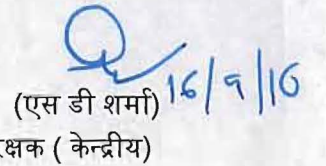 16/9/16
(एस डी शर्मा)
रक्षक ( केन्द्रीय)